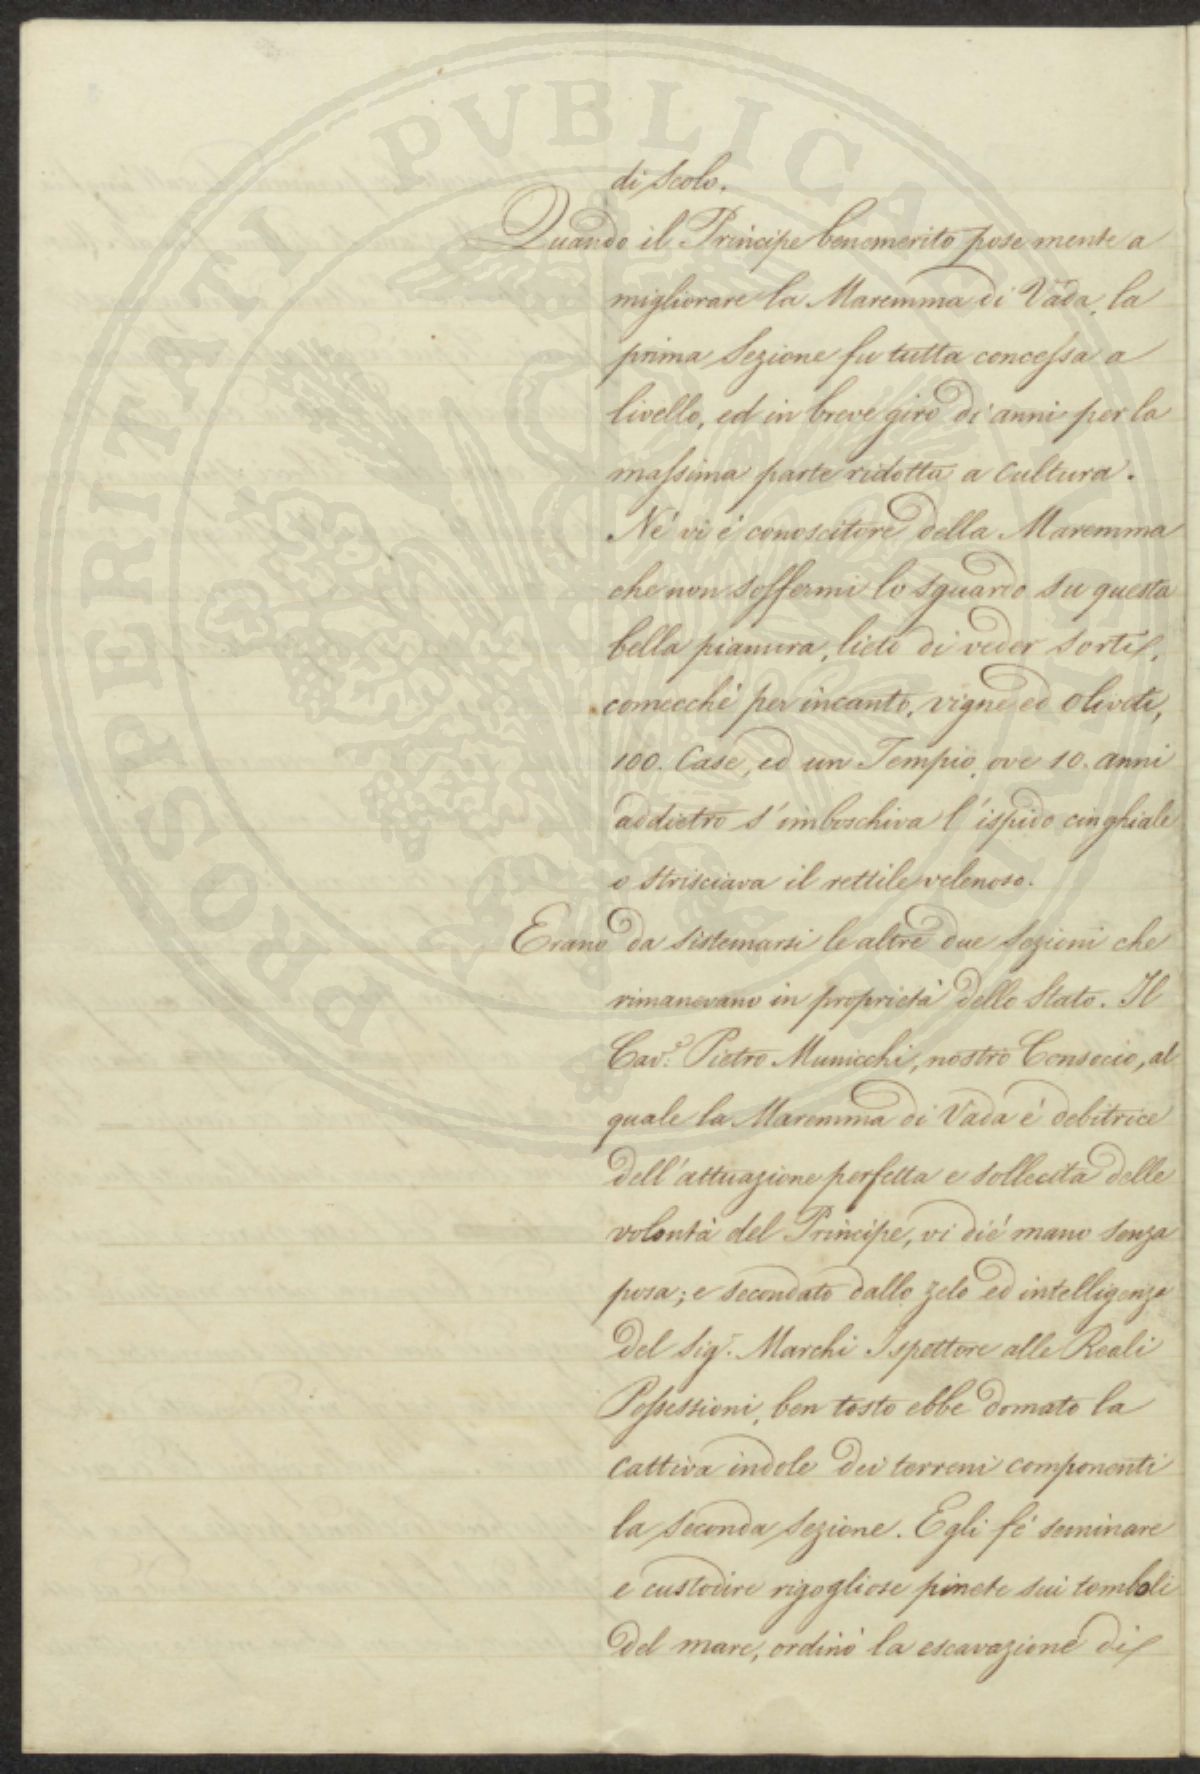 di scolo.
Quando il Principe benemerito pose mente a
migliorare la Maremma di Vada, la
prima Sezione fu tutta concessa a
livello, ed in breve giro di anni per la
massima parte ridotta a cultura.
Né vi é conoscitore della Maremma
che non soffermi lo sguardo su questa
bella pianura, lieto di veder sorti,
comecché per incanto, vigne ed oliveti,
100. Case, ed un Tempio, ove 10. anni
addietro s'imboschiva l'ispido cinghiale
o strisciava il rettile velenoso.
Erano da sistemarsi le altre due Sezioni che
rimanevano in proprietà dello Stato. Il
Cav.e Pietro Municchi, nostro Consocio, al
quale la Maremma di Vada é debitrice
dell'attuazione perfetta e sollecita delle
volontà del Principe, vi dié mano senza
posa; e secondato dallo zelo ed intelligenza
del Sig.r Marchi Ispettore alle Reali
Possessioni, ben tosto ebbe domato la
cattiva indole dei terreni componenti
la seconda Sezione. Egli fé seminare
e custodire rigogliose pinete sui tomboli
del mare, ordinò la escavazione di
PROSPERITATI PVBLICAE AVGENDAE